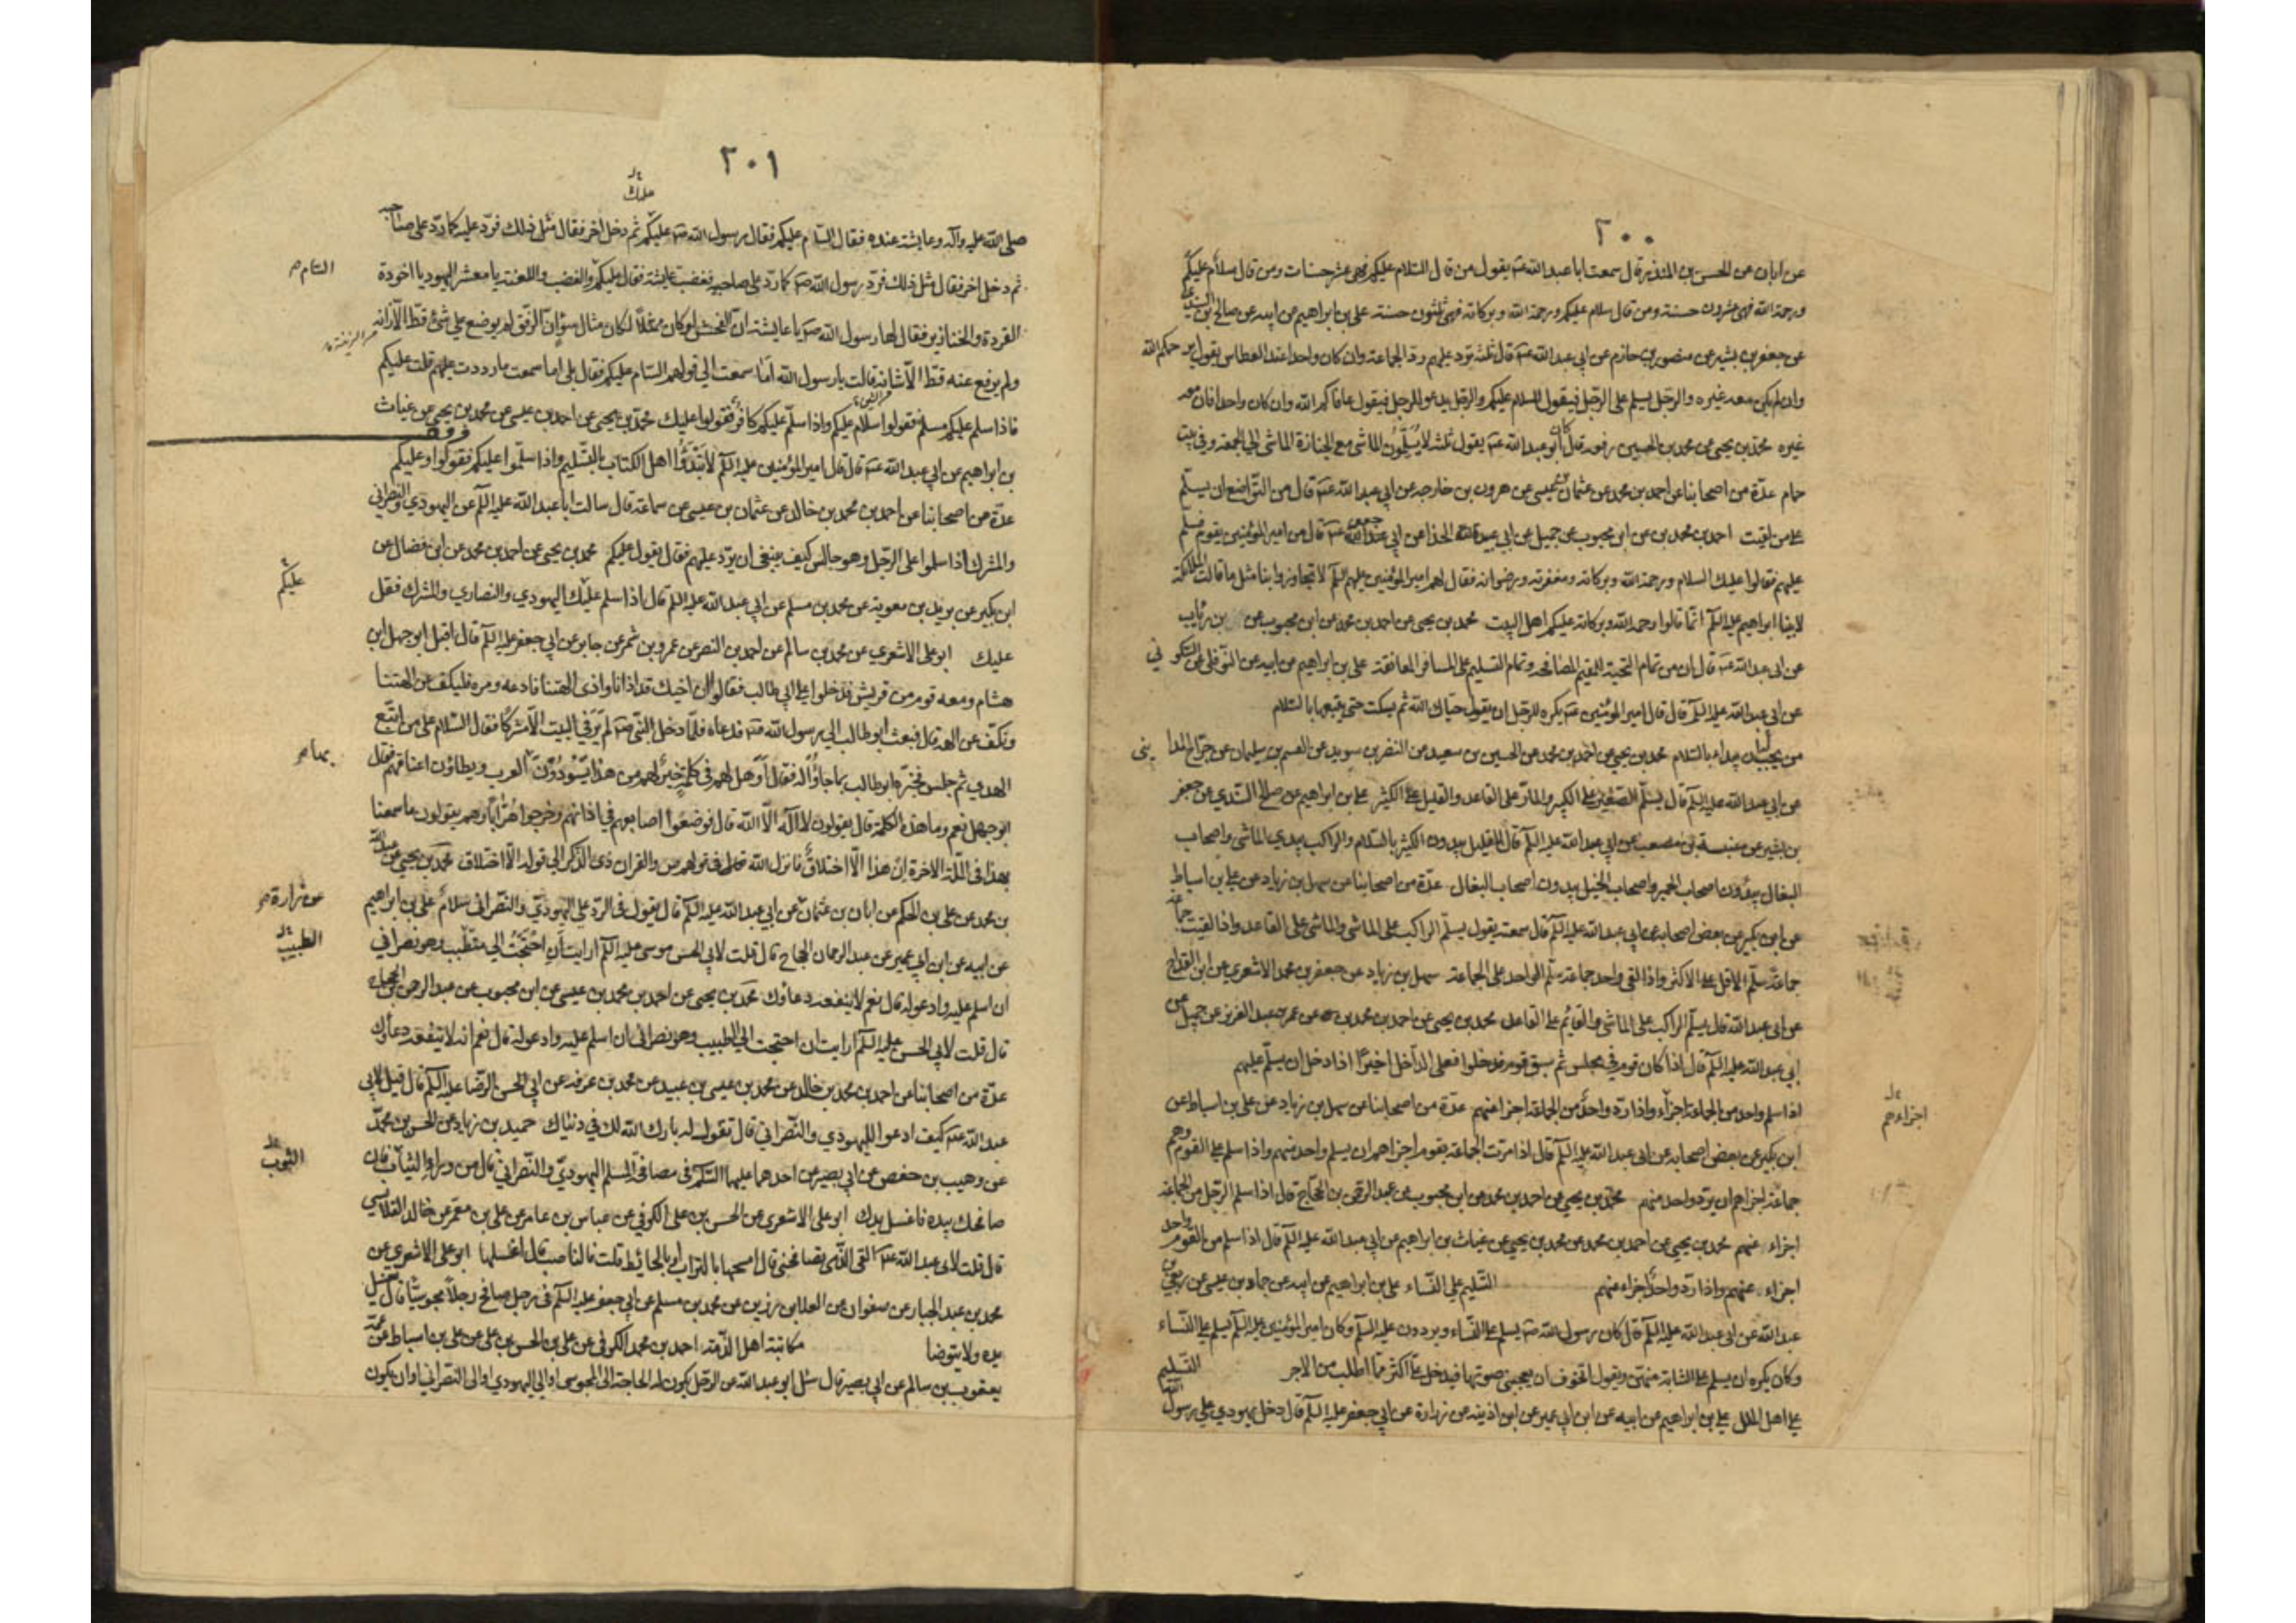 ٢٠٠
عن ابان عن الحسن بن المنذر قال سمعت ابا عبد الله ع يقول من قال السلام عليكم فهي عشر حسنات ومن قال سلام عليكم
ورحمة الله فهي عشرون حسنة ومن قال سلام عليكم ورحمة الله وبركاته فهي ثلثون حسنة علي بن ابراهيم عن ابيه عن صالح بن السندي
عن جعفر بن بشير عن منصور بن حازم عن ابي عبد الله ع قال ثلثة ترد عليهم رد الجماعة وان كان واحدا عند العطاس يقول يرحمكم الله
وان لم يكن معه غيره والرجل يسلم على الرجل فيقول السلام عليكم والرجل يدعو للرجل فيقول عافاكم الله وان كان واحدا فان معه
غيره محمد بن يحيى عن محمد بن الحسين رفعه قال كان ابو عبد الله ع يقول ثلثة لا يسلمون الماشي مع الجنازة الماشي الى الجمعة وفي بيت
حمام عدة من اصحابنا عن احمد بن محمد عن عثمان بن عيسى عن هرون بن خارجة عن ابي عبد الله ع قال من التواضع ان يسلم
على من لقيت احمد بن محمد بن عن ابن محبوب عن جميل عن ابي عبيدة الحذا عن ابي جعفر ع قال مر امير المؤمنين بقوم فسلم
عليهم فقالوا عليك السلام ورحمة الله وبركاته ومغفرته ورضوانه فقال لهم امير المؤمنين عليه السلم لا تجاوزوا بنا مثل ما قالت الملائكة
لابينا ابراهيم عليه السلم انما قالوا رحمة الله وبركاته عليكم اهل البيت محمد بن يحيى عن احمد بن محمد عن ابن محبوب عن بن رئاب
عن ابي عبد الله ع قال ان من تمام التحية للمقيم المصافحة وتمام التسليم على المسافر المعانقة علي بن ابراهيم عن ابيه عن النوفلي عن السكوني
عن ابي عبد الله عليه السلم قال قال امير المؤمنين ع يكره للرجل ان يقول حياك الله ثم يسكت حتى يتبعها بالسلام
من يجب ان يبداء بالسلام محمد بن يحيى عن احمد بن محمد عن الحسين بن سعيد عن النضر بن سويد عن القسم بن سليمان عن جراح المدايني
عن ابي عبد الله عليه السلم قال يسلم الصغير على الكبير والمار على القاعد والقليل على الكثير علي بن ابراهيم عن صالح السندي عن جعفر
بن بشير عن عنبسة بن مصعب عن ابي عبد الله عليه السلم قال القليل يبدون الكثير بالسلام والراكب يبدي الماشي واصحاب
البغال يبدؤن اصحاب الحمير واصحاب الخيل يبدون اصحاب البغال عدة من اصحابنا عن سهل بن زياد عن علي بن اسباط
عن ابن بكير عن بعض اصحابه عن ابي عبد الله عليه السلم قال سمعته يقول يسلم الراكب على الماشي والماشي على القاعد واذا لقيت جماعة
جماعة سلم الاقل على الاكثر واذا لقى واحد جماعة سلم الواحد على الجماعة سهل بن زياد عن جعفر بن محمد الاشعري عن ابن القداح
عن ابي عبد الله قال يسلم الراكب على الماشي والقايم على القاعد محمد بن يحيى عن احمد بن محمد بن عن عمر بن عبد العزيز عن جميل عن
ابي عبد الله عليه السلم قال اذا كان قوم في مجلس ثم سبق قوم فدخلوا فعلى الداخل اخيرا اذا دخل ان يسلم عليهم
اذا سلم واحد من الجماعة اجزاء واذا رد واحد من الجماعة اجزا عنهم عدة من اصحابنا عن سهل بن زياد عن علي بن اسباط عن
اجزاءهم
ابن بكير عن بعض اصحابه عن ابي عبد الله عليه السلم قال اذا مرت الجماعة بقوم اجزاهم ان يسلم واحد منهم واذا سلم على القوم وهم
جماعة اجزاهم ان يرد واحد منهم محمد بن يحيى عن احمد بن محمد عن ابن محبوب عن عبد الرحمن بن الحجاج قال اذا سلم الرجل من الجماعة
اجزاء عنهم محمد بن يحيى عن احمد بن محمد عن محمد بن يحيى عن غياث بن ابراهيم عن ابي عبد الله عليه السلم قال اذا سلم من القوم واحد
اجزاء عنهم واذا رد واحد اجزاء عنهم التسليم على النساء علي بن ابراهيم عن ابيه عن حماد بن عيسى عن ربعي بن
عبد الله عن ابي عبد الله عليه السلم قال كان رسول الله ص يسلم على النساء ويرددن عليه السلم وكان امير المؤمنين عليه السلم يسلم على النساء
وكان يكره ان يسلم على الشابة منهن ويقول اتخوف ان يعجبني صوتها فيدخل علي اكثر مما اطلب من الاجر التسليم
على اهل الملل علي بن ابراهيم عن ابيه عن ابن ابي عمير عن ابن اذينه عن زرارة عن ابي جعفر عليه السلم قال دخل يهودي على رسول الله
٢٠١
عليك
صلى الله عليه وآله وعايشة عنده فقال السام عليكم فقال رسول الله ص عليكم ثم دخل اخر فقال مثل ذلك فرد عليه كما رد على صاحبه
السام
ثم دخل اخر فقال مثل ذلك فرد رسول الله ص كما رد على صاحبيه فغضبت عايشة فقال عليكم والغضب واللعنة يا معشر اليهود يا اخوة
القردة والخنازير فقال لها رسول الله ص يا عايشة ان الفحش لو كان ممثلا لكان مثال سوء ان الرفق لم يوضع على شئ قط الا زانه
ولم يرفع عنه قط الا شانه قالت يا رسول الله اما سمعت الى قولهم السام عليكم فقال بلى اما سمعت ما رددت عليهم قلت عليكم
فاذا سلم عليكم مسلم فقولوا سلام عليكم واذا سلم عليكم كافر فقولوا عليك محمد بن يحيى عن احمد بن عيسى عن محمد بن يحيى عن غياث
بن ابراهيم عن ابي عبد الله ع قال قال امير المؤمنين عليه السلم لا تبتدؤا اهل الكتاب بالتسليم واذا سلموا عليكم فقولوا وعليكم
عدة من اصحابنا عن احمد بن محمد بن خالد عن عثمان بن عيسى عن سماعة قال سالت ابا عبد الله عليه السلم عن اليهودي والنصراني
والمشرك اذا سلموا على الرجل وهو جالس كيف ينبغي ان يرد عليهم فقال يقول عليكم محمد بن يحيى عن احمد بن محمد عن ابن فضال عن
عليكم
ابن بكير عن بريد بن معوية عن محمد بن مسلم عن ابي عبد الله عليه السلم قال اذا سلم عليك اليهودي والنصاري والمشرك فقل
عليك ابو علي الاشعري عن محمد بن سالم عن احمد بن النضر عن عمرو بن شمر عن جابر عن ابي جعفر عليه السلم قال اقبل ابو جهل ابن
هشام ومعه قوم من قريش فدخلوا على ابي طالب فقالوا ان اخيك قد اذانا واذى الهتنا فادعه ومره فليكف عن الهتنا
ونكف عن الهه قال فبعث ابو طالب الى رسول الله ص فدعاه فلما دخل النبي ص لم ير في البيت الا مشركا فقال السلام على من اتبع
الهدى ثم جلس فخبره ابو طالب بما جاؤا له فقال او هل لهم في كلمة خير لهم من هذا يسودون العرب ويطاؤن اعناقهم فقال
بها
ابو جهل نعم وما هذه الكلمة قال يقولون لا اله الا الله قال فوضعوا اصابعهم في اذانهم وخرجوا هرابا وهم يقولون ما سمعنا
بهذا في الملة الاخرة ان هذا الا اختلاق فانزل الله تعالى في قولهم ص والقران ذي الذكر الى قوله الا اختلاق محمد بن يحيى عن عبد الله
عن زرارة
بن محمد عن علي بن الحكم عن ابان بن عثمان عن ابي عبد الله عليه السلم قال يقول في الرد على اليهودي والنصراني سلام علي بن ابراهيم
الطبيب
عن ابيه عن ابن ابي عمير عن عبد الرحمان الحجاج قال قلت لابي الحسن موسى عليه السلم ارايت ان احتجت الى متطبب وهو نصراني
ان اسلم عليه وادعو له قال نعم لا ينفعه دعاؤك محمد بن يحيى عن احمد بن محمد بن عيسى عن ابن محبوب عن عبد الرحمن بن الحجاج
قال قلت لابي الحسن عليه السلم ارايت ان احتجت الى الطبيب وهو نصراني ان اسلم عليه وادعو له قال نعم انه لا ينفعه دعاؤك
عدة من اصحابنا عن احمد بن محمد بن خالد عن محمد بن عيسى بن عبيد عن محمد بن عرفة عن ابي الحسن الرضا عليه السلم قال قيل لابي
عبد الله ع كيف ادعو لليهودي والنصراني قال تقول له بارك الله لك في دنياك حميد بن زياد عن الحسن بن محمد
الثوب
عن وهيب بن حفص عن ابي بصير عن احدهما عليهما السلم في مصافحة المسلم اليهودي والنصراني قال من وراء الثياب فان
صافحك بيده فاغسل يدك ابو علي الاشعري عن الحسن بن علي الكوفي عن عباس بن عامر عن علي بن معمر عن خالد القلانسي
قال قلت لابي عبد الله ع القى الذمي فيصافحني قال امسحها بالتراب او بالحائط قلت فالناصب قال اغسلها ابو علي الاشعري عن
محمد بن عبد الجبار عن صفوان عن العلا بن رزين عن محمد بن مسلم عن ابي جعفر عليه السلم في رجل صافح رجلا مجوسيا قال يغسل
يده ولا يتوضا مكاتبة اهل الذمة احمد بن محمد الكوفي عن علي بن الحسن بن علي عن علي بن اسباط عن عمه
يعقوب بن سالم عن ابي بصير قال سئل ابو عبد الله عن الرجل يكون له الحاجة الى المجوسي او الى اليهودي او الى النصراني او ان يكون